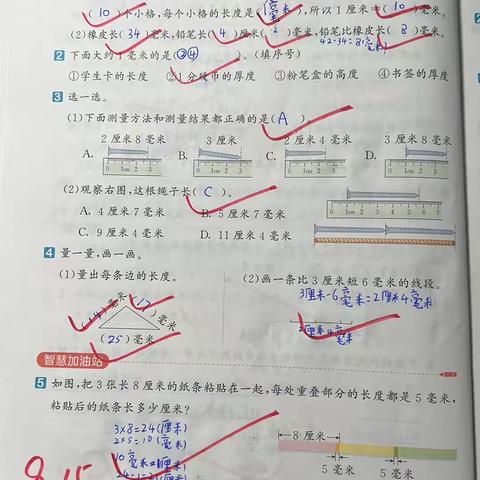 (10)个小格,每个小格的长度是(1毫米),所以1厘米=(10)毫米。
(2)橡皮长(34)毫米,铅笔长(4)厘米(2)毫米,铅笔比橡皮长(8)毫米。
42-34=8(毫米)
2 下面大约1毫米的是(②④)。(填序号)
①学生卡的长度 ②1分硬币的厚度 ③粉笔盒的高度 ④书签的厚度
3 选一选。
(1)下面测量方法和测量结果都正确的是(A)。
2厘米8毫米 3厘米 2厘米4毫米 3厘米8毫米
A. B. C. D.
(2)观察右图,这根绳子长(C)。
A. 4厘米7毫米 B. 5厘米7毫米
C. 9厘米4毫米 D. 11厘米4毫米
4 量一量,画一画。
(1)量出每条边的长度。 (2)画一条比3厘米短6毫米的线段。
3厘米-6毫米=2厘米4毫米
(14)毫米 (17)毫米
2厘米4毫米
(25)毫米
智慧加油站
5 如图,把3张长8厘米的纸条粘贴在一起,每处重叠部分的长度都是5毫米,
粘贴后的纸条长多少厘米?
3×8=24(厘米)
2×5=10(毫米)
10毫米=1(厘米)
8厘米
5毫米 5毫米